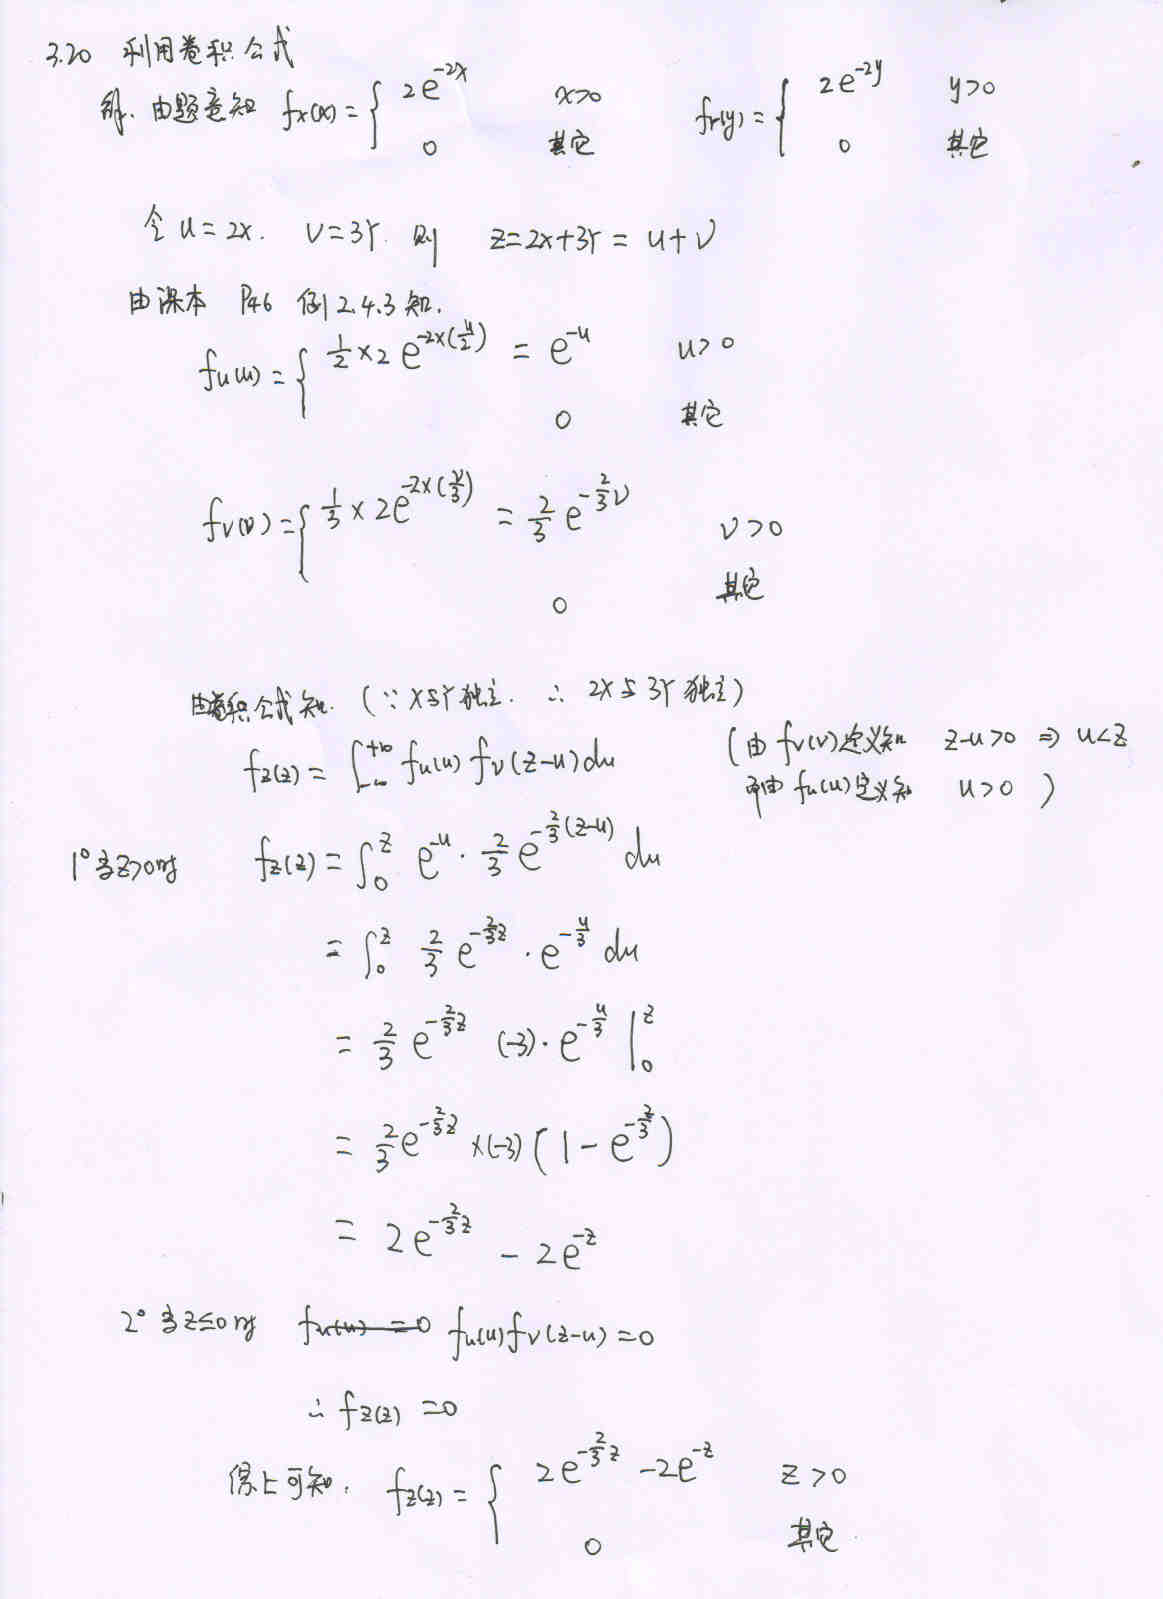 3.20 利用卷积公式
解. 由题意知 fx(x) = { 2e^{-2x} x>0 fY(y) = { 2e^{-2y} y>0
0 其它 0 其它
令 u = 2X. V = 3Y. 则 Z = 2X+3Y = u+V
由课本 P46 例 2.4.3 知.
fu(u) = { 1/2 × 2 e^{-2×(u/2)} = e^{-u} u>0
0 其它
fV(v) = { 1/3 × 2e^{-2×(v/3)} = 2/3 e^{-2/3 v} v>0
0 其它
由卷积公式知. (∵ X与Y独立. ∴ 2X与3Y独立)
fz(z) = ∫_{-∞}^{+∞} fu(u) fv(z-u) du (由 fv(v)定义知 z-u>0 ⇒ u<z
再由 fu(u)定义知 u>0 )
1° 当z>0时 fz(z) = ∫_0^z e^{-u} · 2/3 e^{-2/3(z-u)} du
= ∫_0^z 2/3 e^{-2/3 z} · e^{-u/3} du
= 2/3 e^{-2/3 z} (-3)· e^{-u/3} |_0^z
= 2/3 e^{-2/3 z} ×(-3) (1 - e^{-z/3})
= 2e^{-2/3 z} - 2e^{-z}
2° 当z≤0时 fu(u) = 0 fu(u)fv(z-u) = 0
∴ fz(z) = 0
综上可知. fz(z) = { 2e^{-2/3 z} - 2e^{-z} z>0
0 其它